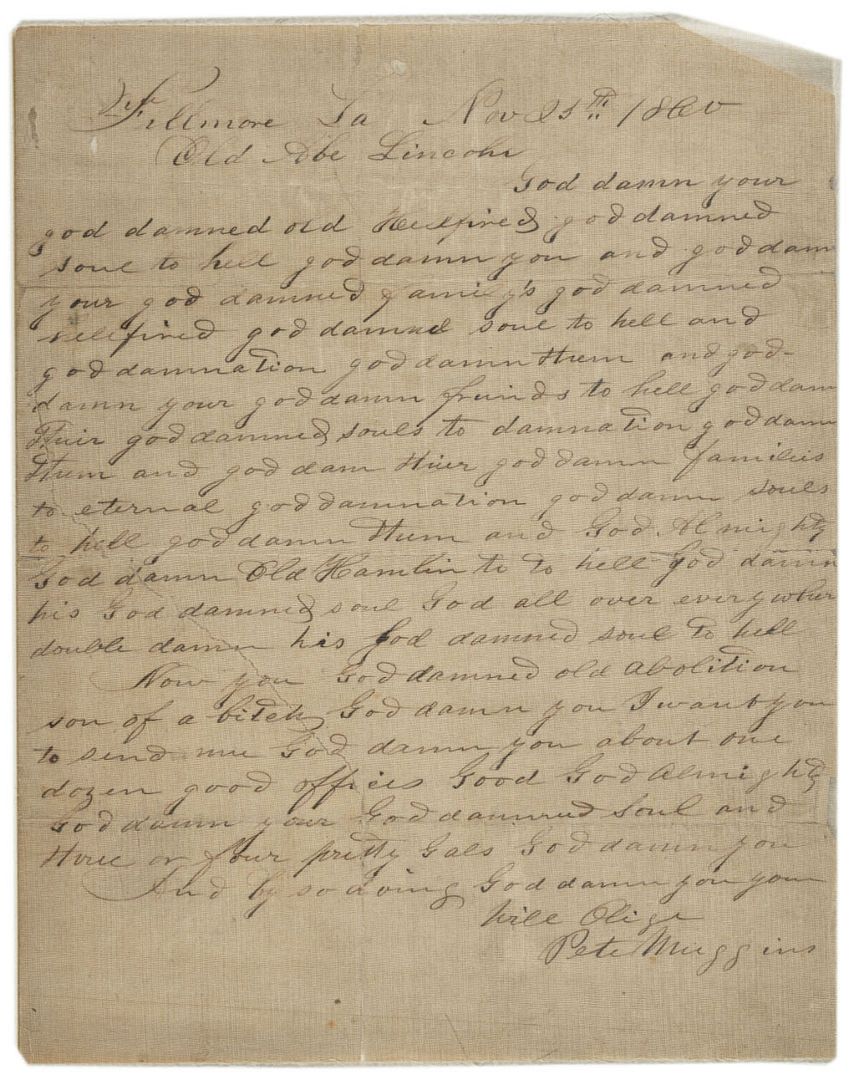 Fillmore La Nov 25th 1860
Old Abe Lincoln
God damn your
god damned old Hellfired god damned
soul to hell god damn you and goddam
your god damned family's god damned
hellfired god damned soul to hell and
god damnation god damn them and god-
damn your god damn friends to hell god dam
their god damned souls to damnation god damn
them and god dam thier god damn families
to eternal god damnation god damn souls
to hell god damn them and God Almighty
God damn Old Hamlin to to hell God damn
his God damned soul God all over everywher
double damn his God damned soul to hell
Now you God damned old Abolition
son of a bitch God damn you I want you
to send me God damn you about one
dozen good offices Good God Almighty
God damn your God damned soul and
three or four pretty Gals God damn you
And by so doing God damn you you
will Olige
Pete Muggins